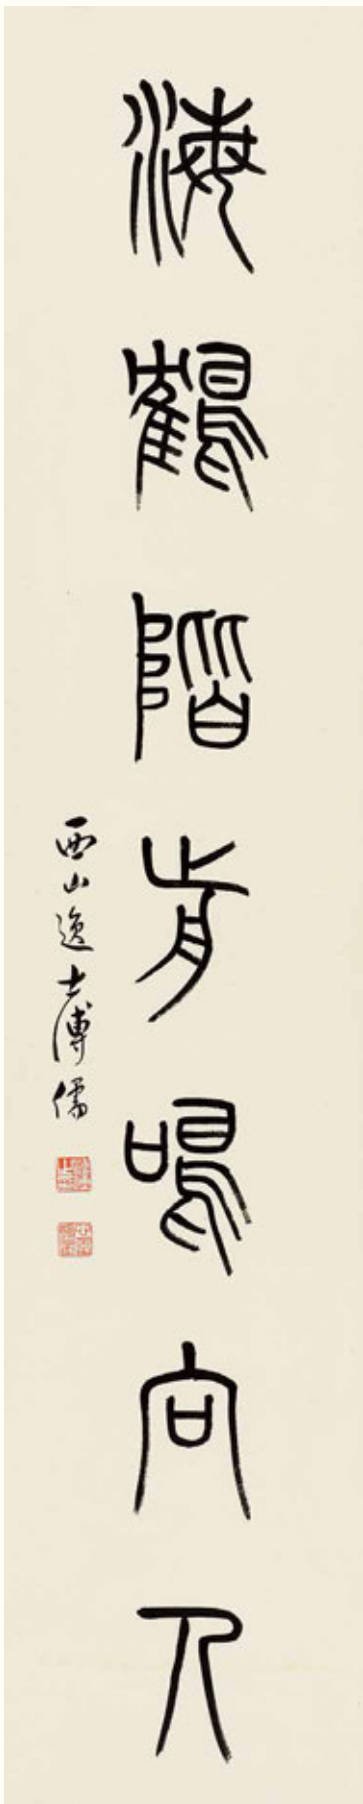 海鶴階前鳴向人
西山逸士溥儒